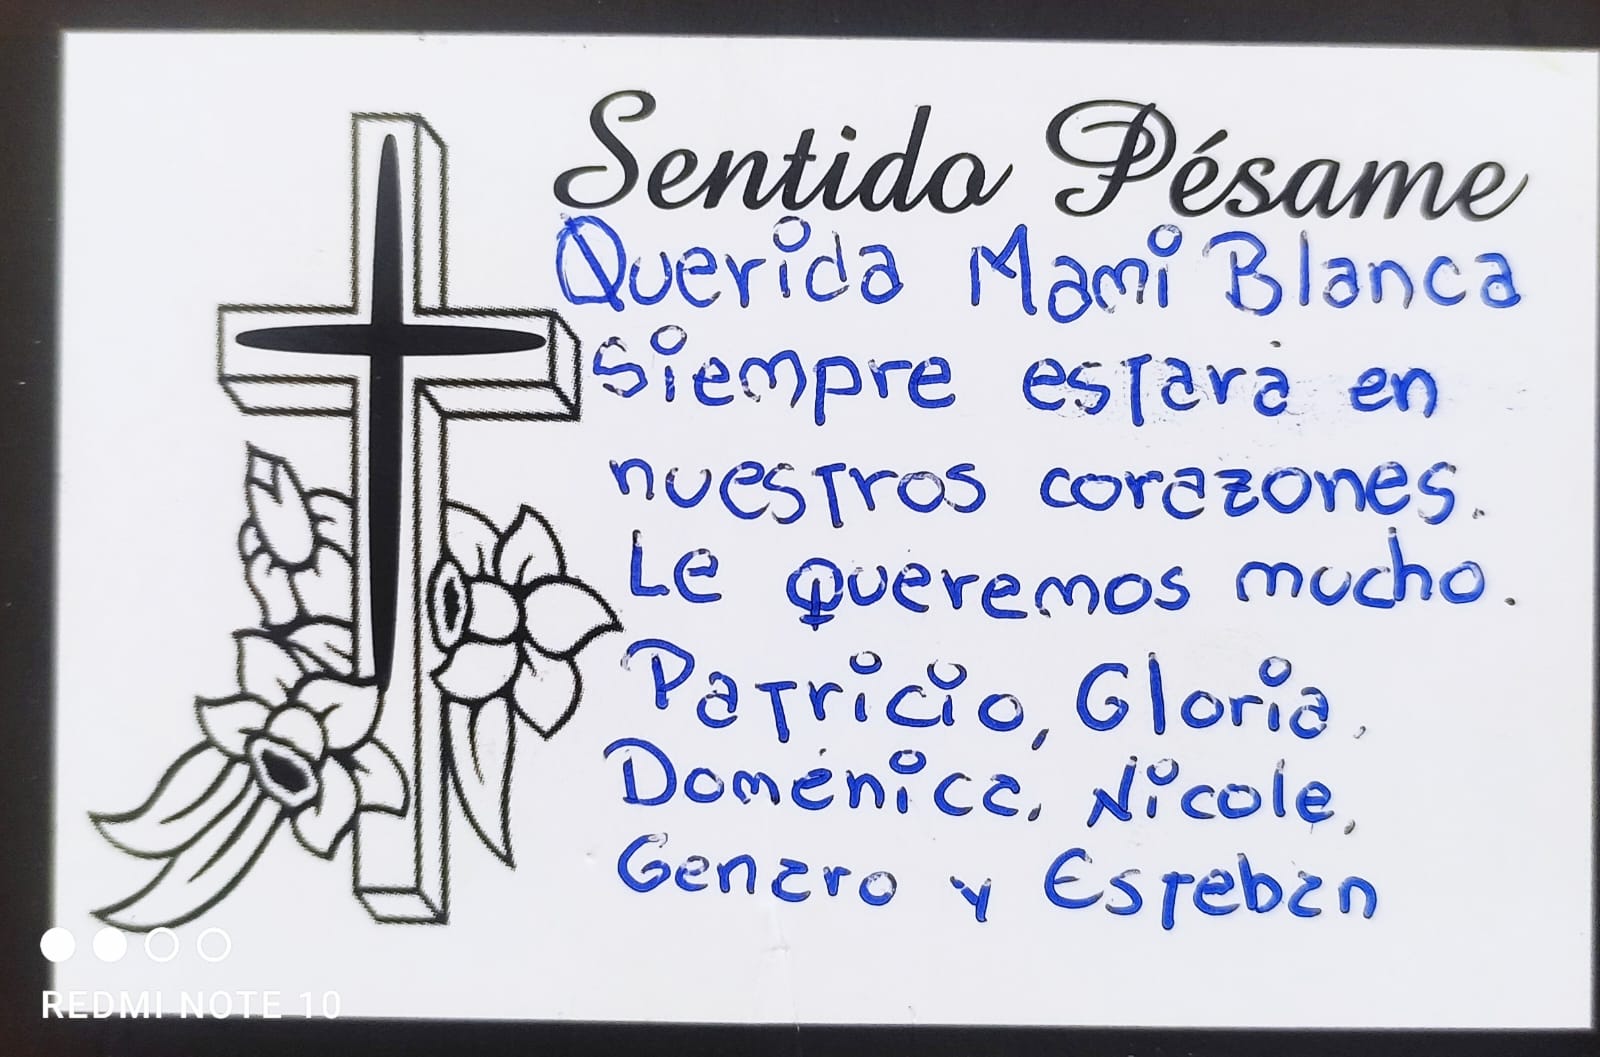 Sentido Pésame
Querida Mami Blanca
siempre estará en
nuestros corazones.
Le queremos mucho.
Patricio, Gloria,
Doménica, Nicole,
Genaro y Esteban
REDMI NOTE 10